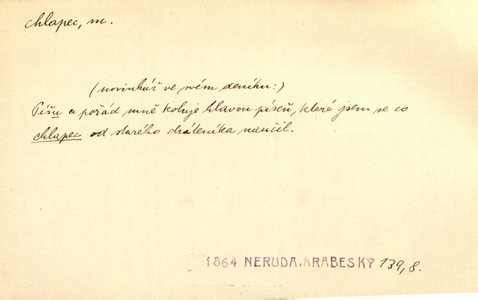 chlapec, m.
(novinkář ve svém deníku:)
Píšu a pořád mně koluje hlavou píseň, které jsem se co
chlapec od starého dráteníka naučil.
1864 NERUDA, ARABESKY 139,8.